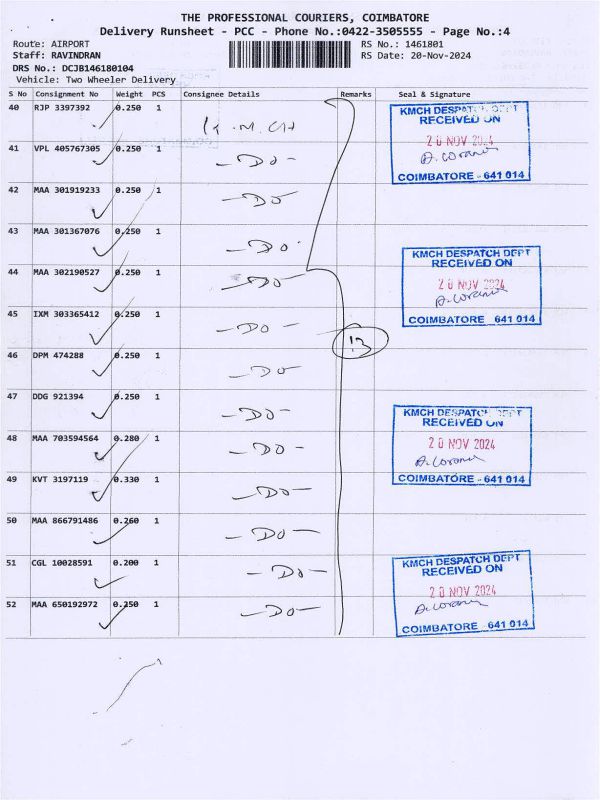 THE PROFESSIONAL COURIERS, COIMBATORE
Delivery Runsheet - PCC - Phone No.:0422-3505555 - Page No.:4
Route: AIRPORT
RS No.: 1461801
Staff: RAVINDRAN
RS Date: 20-Nov-2024
DRS No.: DCJB146180104
Vehicle: Two Wheeler Delivery
S No Consignment No Weight PCS Consignee Details Remarks Seal & Signature
40 RJP 3397392 0.250 1 K.M.CH
41 VPL 405767305 0.250 1 -Do-
42 MAA 301919233 0.250 1 -Do-
43 MAA 301367076 0.250 1 -Do-
44 MAA 302190527 0.250 1 -Do-
45 IXM 303365412 0.250 1 -Do-
46 DPM 474288 0.250 1 -Do-
47 DDG 921394 0.250 1 -Do-
48 MAA 703594564 0.280 1 -Do-
49 KVT 3197119 0.330 1 -Do-
50 MAA 866791486 0.260 1 -Do-
51 CGL 10028591 0.200 1 -Do-
52 MAA 650192972 0.250 1 -Do-
13
KMCH DESPATCH DEPT
RECEIVED ON
20 NOV 2024
COIMBATORE - 641 014
KMCH DESPATCH DEPT
RECEIVED ON
20 NOV 2024
COIMBATORE - 641 014
KMCH DESPATCH DEPT
RECEIVED ON
20 NOV 2024
COIMBATORE - 641 014
KMCH DESPATCH DEPT
RECEIVED ON
20 NOV 2024
COIMBATORE - 641 014